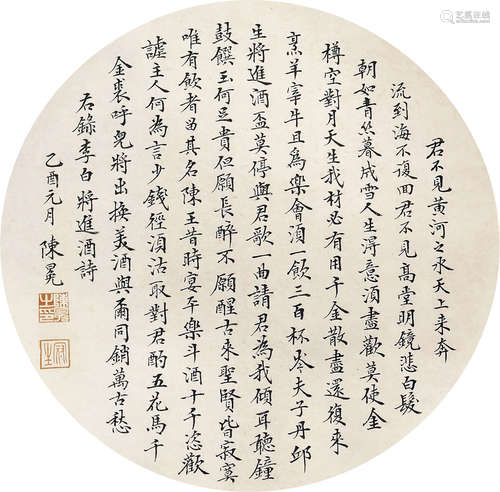 君不見黃河之水天上来奔
流到海不復回君不見高堂明鏡悲白髮
朝如青丝暮成雪人生得意須盡歡莫使金
樽空對月天生我材必有用千金散盡還復來
烹羊宰牛且為樂會須一飲三百杯岑夫子丹邱
生將進酒盃莫停與君歌一曲請君為我傾耳聽鐘
鼓饌玉何足貴但願長醉不願醒古來聖賢皆寂寞
唯有飲者留其名陳王昔時宴平樂斗酒十千恣歡
謔主人何為言少錢徑須沽取對君酌五花馬千
金裘呼兒將出換美酒與爾同銷萬古愁
右錄李白將進酒詩
乙酉元月 陳冕